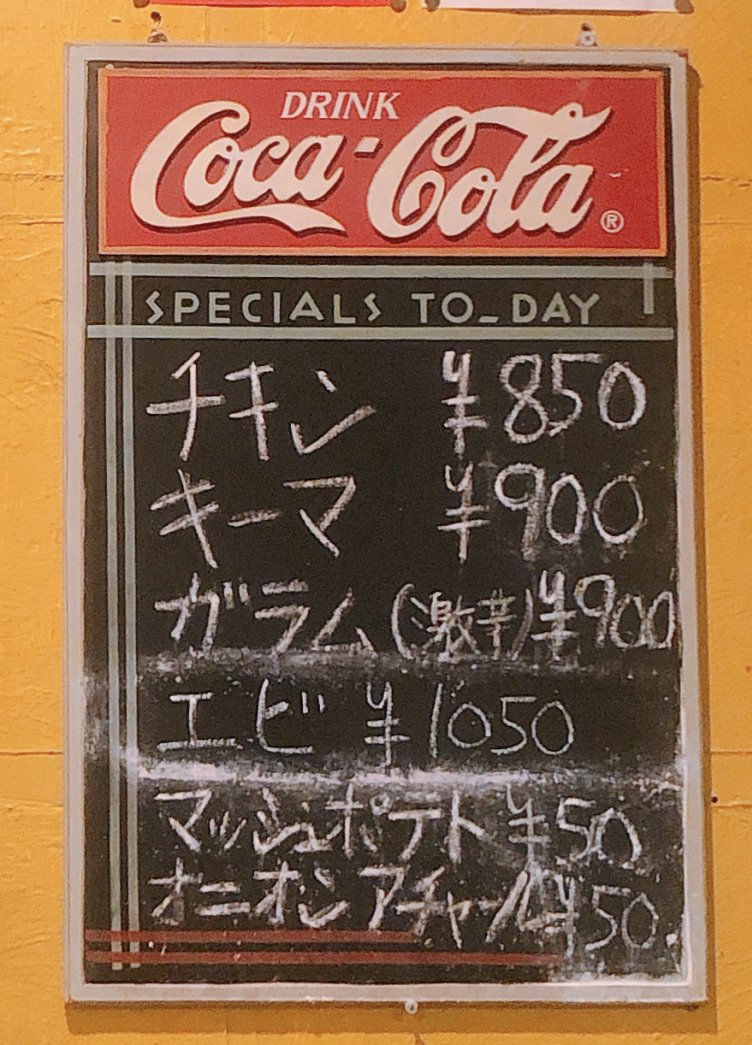 DRINK
Coca-Cola®
SPECIALS TO-DAY
チキン ¥850
キーマ ¥900
ガラム(激辛)¥900
エビ ¥1050
マッシュポテト ¥50
オニオンアチャール ¥50